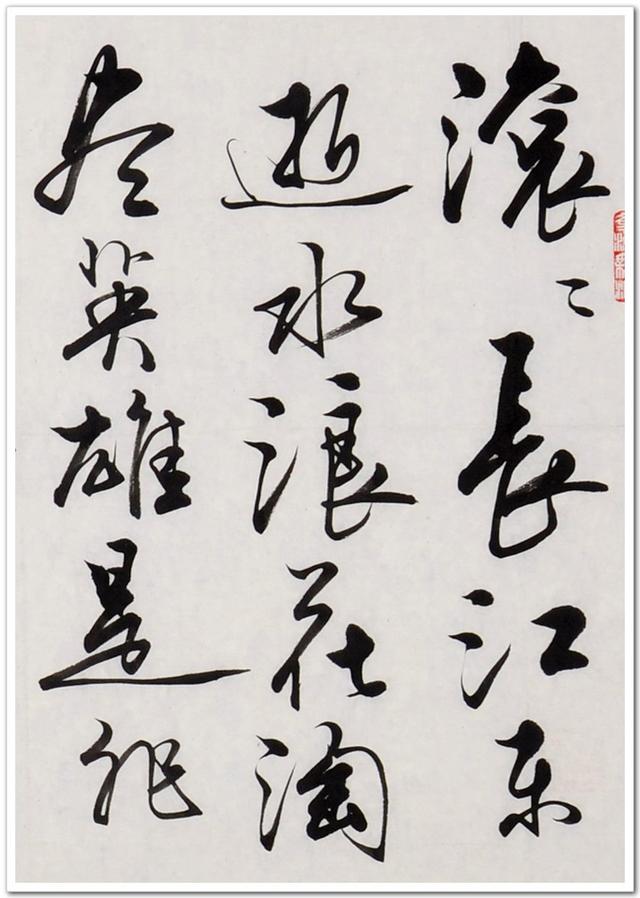 滚〻長江东
逝水浪花淘
尽英雄是非